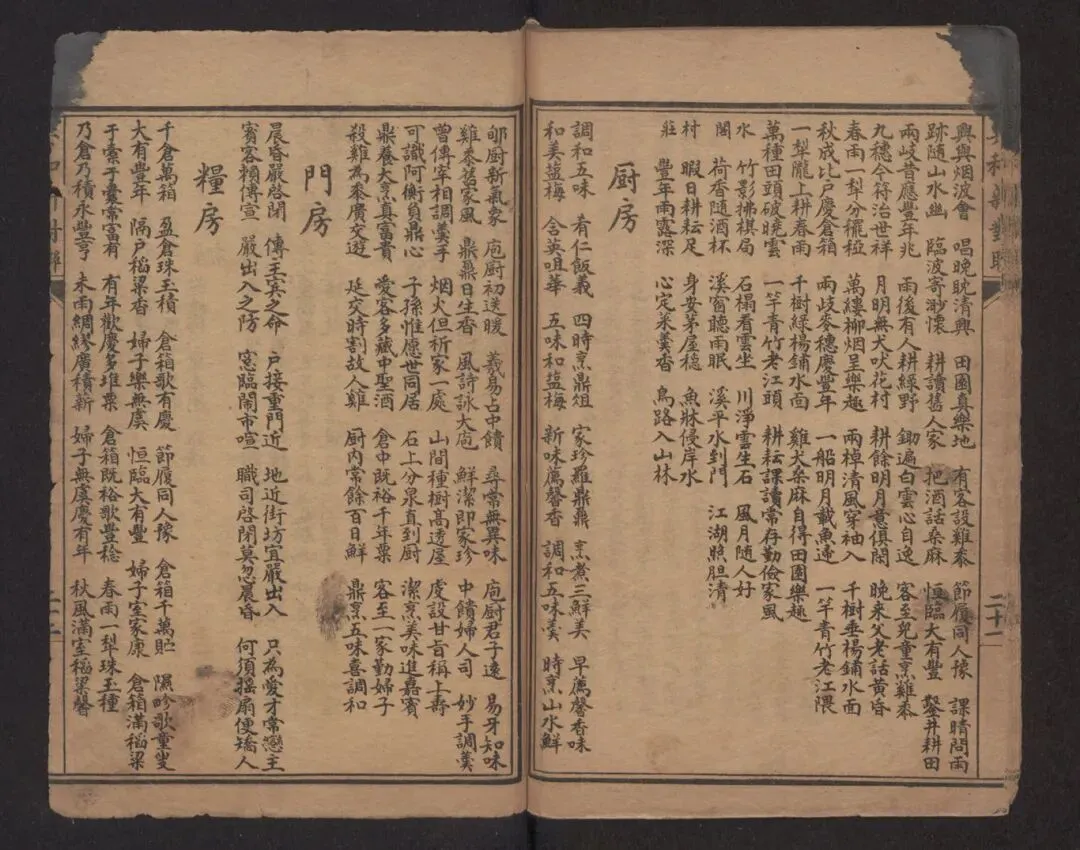 興與烟波會 唱晚晚清興 田園真樂地 有客設雞黍 節履同人豫 課晴問雨
跡隨山水幽 臨波寄渺懷 耕讀舊人家 把酒話桑麻 恒臨大有豐 鑿井耕田
兩岐昔應豐年兆 雨後有人耕綠野 鋤遍白雲心自逸 客至兒童烹雞黍
九穗今符治世祥 月明無犬吠花村 耕餘明月意俱閑 晚來父老話黃昏
春雨一犁分穤稏 萬縷柳烟呈樂趣 兩棹清風穿袖入 千樹垂楊鋪水面
秋成比戶慶倉箱 兩岐麥穗慶豐年 一船明月載魚還 一竿青竹老江隈
一犁隴上耕春雨 千樹綠楊鋪水面 雞犬桑麻自得田園樂趣
萬種田頭破曉雲 一竿青竹老江頭 耕耘課讀常存勤儉家風
水 竹影拂棋局 石榻看雲坐 川淨雲生石 風月隨人好
閣 荷香隨酒杯 溪窗聽雨眠 溪平水到門 江湖照胆清
村 暇日耕耘足 身安茅屋穩 魚牀侵岸水
莊 豐年雨露深 心定菜羹香 鳥路入山林
厨房
調和五味 肴仁飯義 四時烹鼎俎 家珍羅鼎鼎 烹煮三鮮美 早薦馨香味
和美盐梅 含英咀華 五味和盐梅 新味薦馨香 調和五味羹 時烹山水鮮
郇厨新氣象 庖厨初送暖 羲易占中饋 尋常無異味 庖厨君子遠 易牙知味
雞黍舊家風 鼎鼐日生香 風詩詠大庖 鮮潔即家珍 中饋婦人司 妙手調羹
曾傳宰相調羹手 烟火但祈家一處 山間種樹高透屋 虔設甘旨稱上壽
可識阿衡負鼎心 子孫惟愿世同居 石上分泉直到厨 潔烹美味進嘉賓
鼎養大烹真富貴 愛客多藏中聖酒 倉中既裕千年粟 客至一家勤婦子
殺雞為黍廣交遊 延交時割故人雞 厨内常餘百日鮮 鼎烹五味喜調和
門房
晨昏嚴啓閉 傳主賓之命 户接重門近 地近街坊宜嚴出入 只為愛才常戀主
賓客賴傳宣 嚴出入之防 窓臨鬧市喧 職司啓閉莫忽晨昏 何須搖扇便矯人
糧房
千倉萬箱 盈倉珠玉積 倉箱歌有慶 節履同人豫 倉箱千萬貯 隰畛歌童叟
大有豐年 隔户稻粱香 婦子樂無虞 恒臨大有豐 婦子室家康 倉箱滿稻粱
于橐于囊常富有 有年歡慶多堆粟 倉箱既裕歌豐稔 春雨一犁珠玉種
乃倉乃積永豐亨 未雨綢繆廣積新 婦子無虞慶有年 秋風滿室稻粱馨